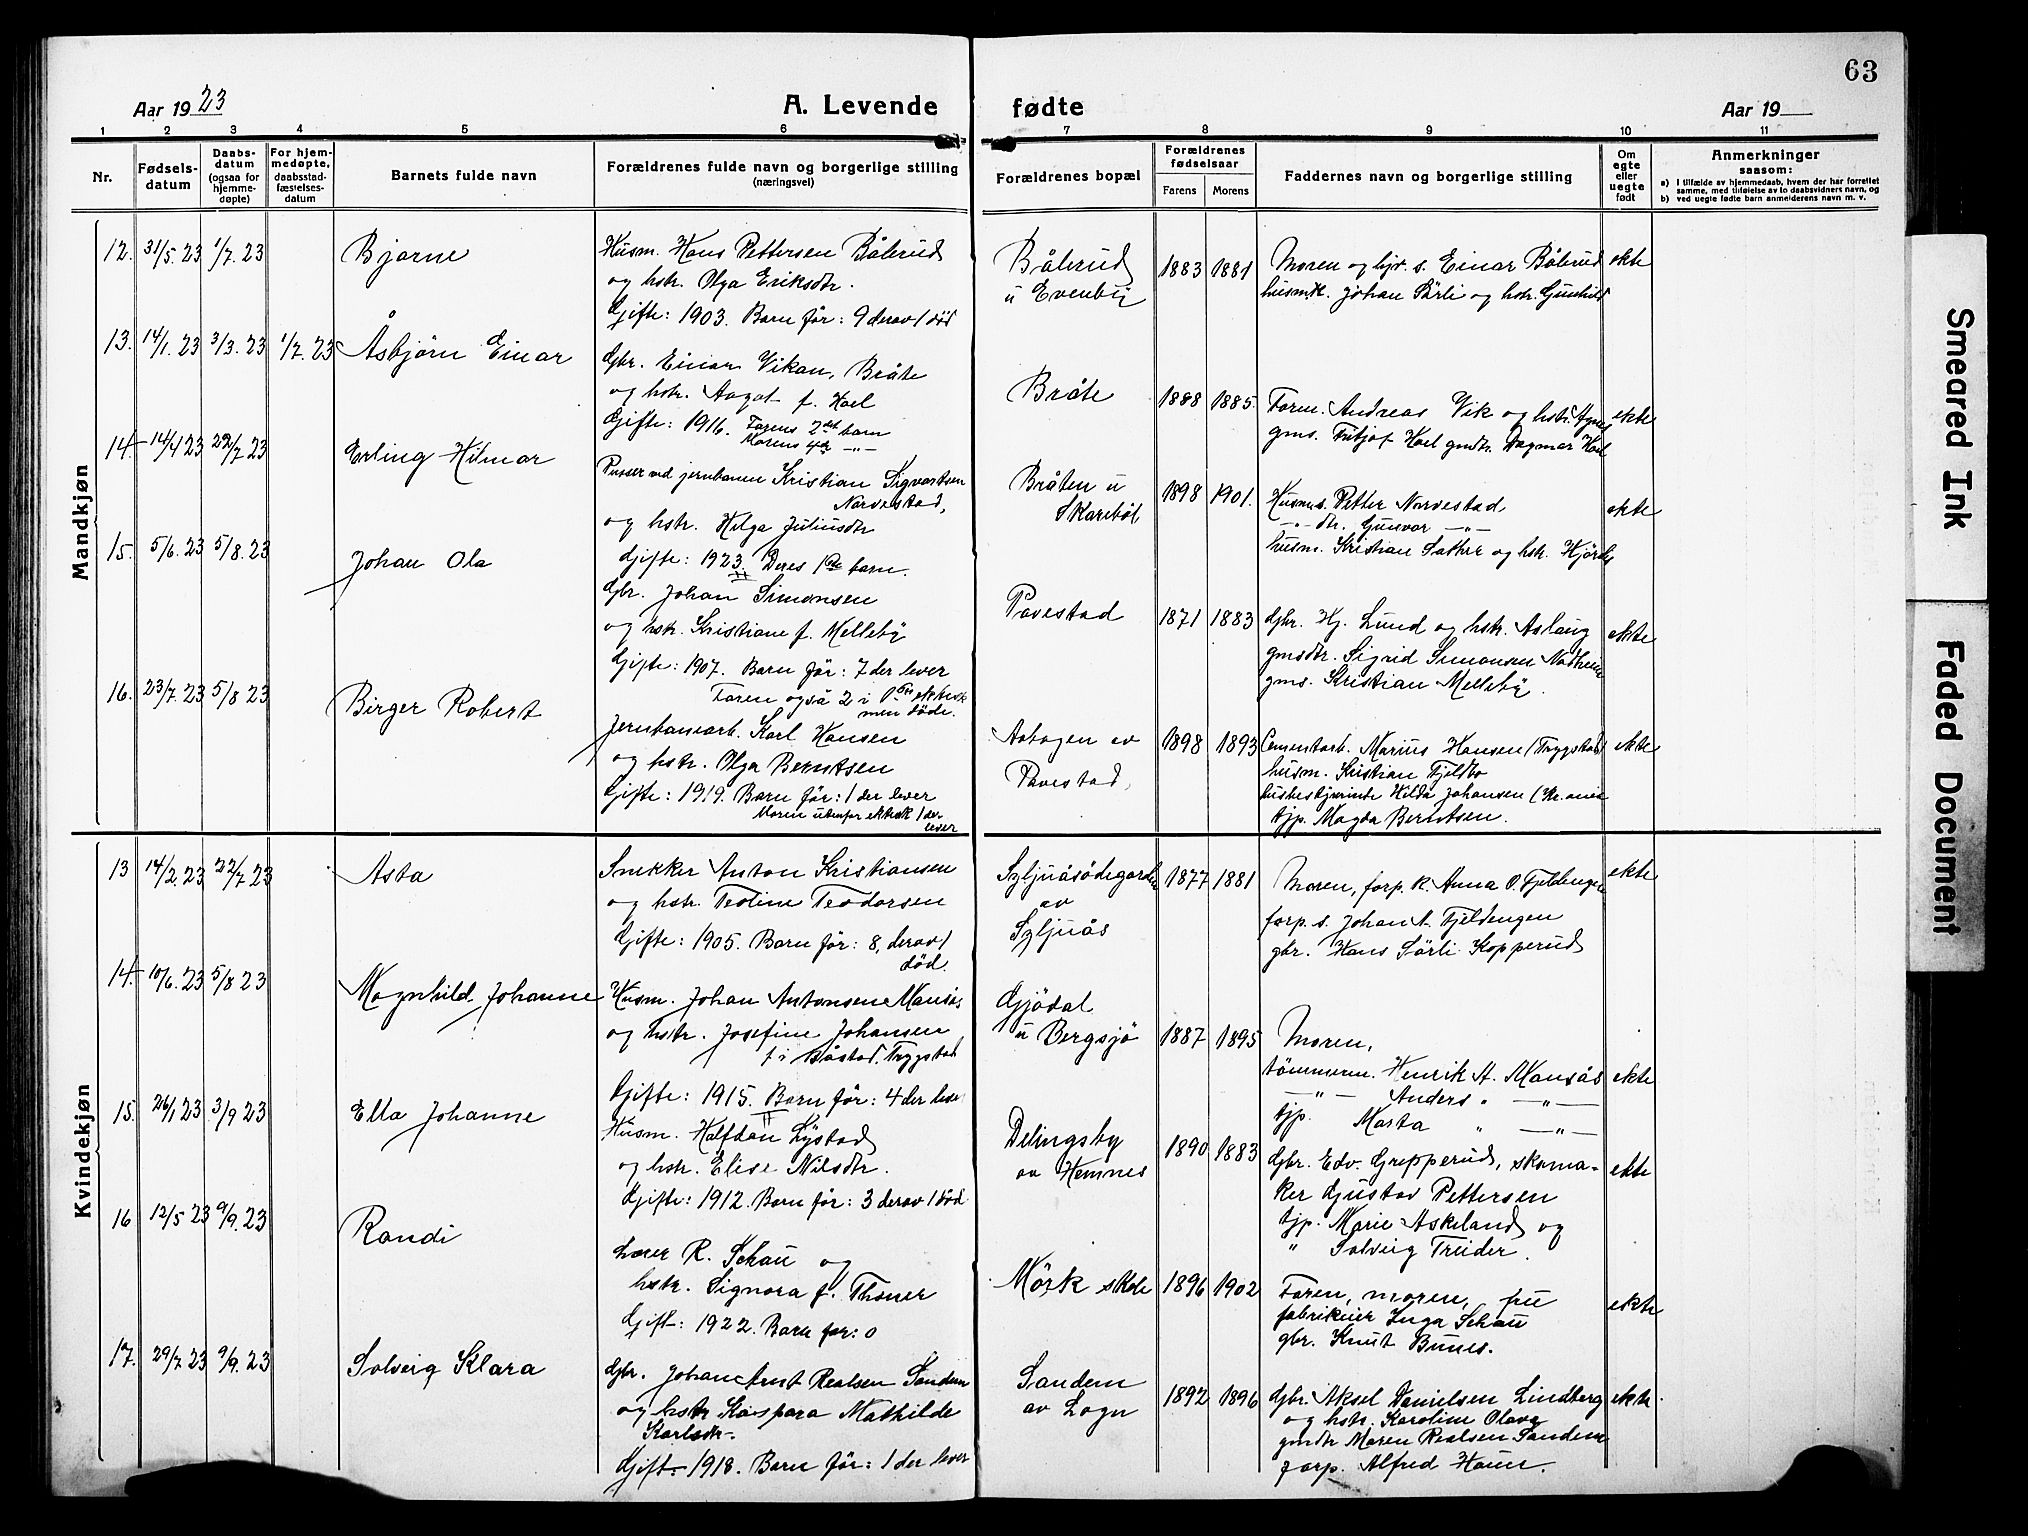 63
Aar 1923
A. Levende
fødte
Aar 19
1 2 3 4 5 6 7 8 9 10 11
Nr.
Fødsels-
datum
Daabs-
datum
(ogsaa for
hjemme-
døpte)
For hjem-
medøpte,
daabsstad-
fæstelses-
datum
Barnets fulde navn
Forældrenes fulde navn og borgerlige stilling
(næringsvei)
Forældrenes bopæl
Forældrenes
fødselsaar
Farens Morens
Faddernes navn og borgerlige stilling
Om
egte
eller
uegte
født
Anmerkninger
saasom:
a) I tilfælde av hjemmedaab, hvem der har forrettet
samme, med tilføielse av to daabsvidners navn, og
b) ved uegte fødte barn anmelderens navn m. v.
Mandkjøn
12. 31/5. 23 1/7. 23
Bjarne
Husm. Hans Pettersen Bålerud
og hstr. Olga Eriksdtr.
Gifte: 1903. Barn før: 9 derav 1 død
Bålerud
u Evenby
1883 1881
Moren og hjv. s. Einar Bålerud
husm. Johan Sörli og hstr. Gunhild
ekte
13. 14/1. 23 3/3. 23 1/7. 23
Åsbjørn Einar
Gbr. Einar Vikan, Bråte
og hstr. Aagot f. Hoel
Gifte: 1916. Farens 2det barn
Morens 4de -"-
Bråte
1888 1885.
Faren. Andreas Vik og hstr. Agnes
gms. Fritjof Hoel gmdtr. Dagmar Hoel
ekte
14. 14/4 23 22/7 23
Erling Hilmar
Pusser ved jernbanen Kristian Sigvartsen
Narvestad,
og hstr. Helga Juliusdtr
Gifte: 1923. Deres 1ste barn.
Bråten u
Skarebøl
1898 1901.
Husms. Petter Narvestad
-"- dtr. Gunvor -"-
husm. Kristian Sæthre og hstr. Hjördis
ekte
15. 5/6. 23 5/8. 23
Johan Ola
Gbr. Johan Simonsen
og hstr. Kristiane f. Melleby
Gifte: 1907. Barn før: 7 der lever
Faren også 2 i 1ste ektesk
men døde.
Tavestad
1871 1883
Gbr. Hj. Lund og hstr. Aslaug
gmsdtr. Sigrid Simonsen
gms. Kristian Melleby.
ekte
16. 23/7. 23 5/8 23
Birger Robert
Jernbanearb. Karl Hansen
og hstr. Olga Berntsen
Gifte: 1919. Barn før: 1 der lever
Moren utenfor ektesk 1 der
lever
av
Tavestad,
1898 1893
Cementarb. Marius Hansen (Trygstad)
husm. Kristian Fjeldbo
husbestyrerinde Hilda Johansen
tjp. Magda Berntsen.
ekte
Kvindekjøn
13 14/2. 23 22/7 23
Asta
Snekker Anton Kristiansen
og hstr. Teoline Teodorsen
Gifte: 1905. Barn før: 8, derav 1
død.
Szljuåsödegarden
av
Szljuås
1877 1881
Moren, forp. k. Anna O. Fjeldengen
forp. s. Johan A. Fjeldengen
gbr. Hans Sörli Kopperud
ekte
14. 10/6. 23 5/8 23
Magnhild Johanne
Husm. Johan Antonsen Mansås
og hstr. Josefine Johansen
f. i Båstad. Trygstad
Gifte: 1915. Barn før: 4 der lever
Gjödal
u Bergsjø
1887 1895
Moren,
tömmerm. Henrik A. Mansås
-"- Anders " -"-
tjp. Marta " -"-
ekte
15. 26/1 23 3/9 23
Ella Johanne
Husm. Halfdan Lystad
og hstr. Elise Nilsdtr.
Gifte: 1912. Barn før: 3 derav 1 død
Delingsby
av Hemnes
1890 1883
Gbr. Edv. Grepperud, skoma-
ker Gustav Pettersen
tjp. Marie Askeland og
" Solveig Treider.
ekte
16 12/5 23 9/9. 23
Randi
Lærer R. Schau og
hstr. Signora f. Thoner
Gift: 1922. Barn før: 0
Mörk skole
1896 1902
Faren, moren, fru
fabrikeier Inga Schau
gbr. Knut Bunes.
ekte
17. 29/7 23 9/9. 23
Solveig Klara
Gbr. Johan Arnt Realsen Sandem
og hstr Kaspara Mathilde
Karlsdtr.
Gift: 1918. Barn før: 1 der lever
Sandem
av Logn
1892 1896
Gbr. Aksel Danielsen Lindberg
og hstr. Karoline Olava
gmdtr Maren Realsen Sandem
forp. Alfred Haun.
ekte
Smeared Ink
Faded Document